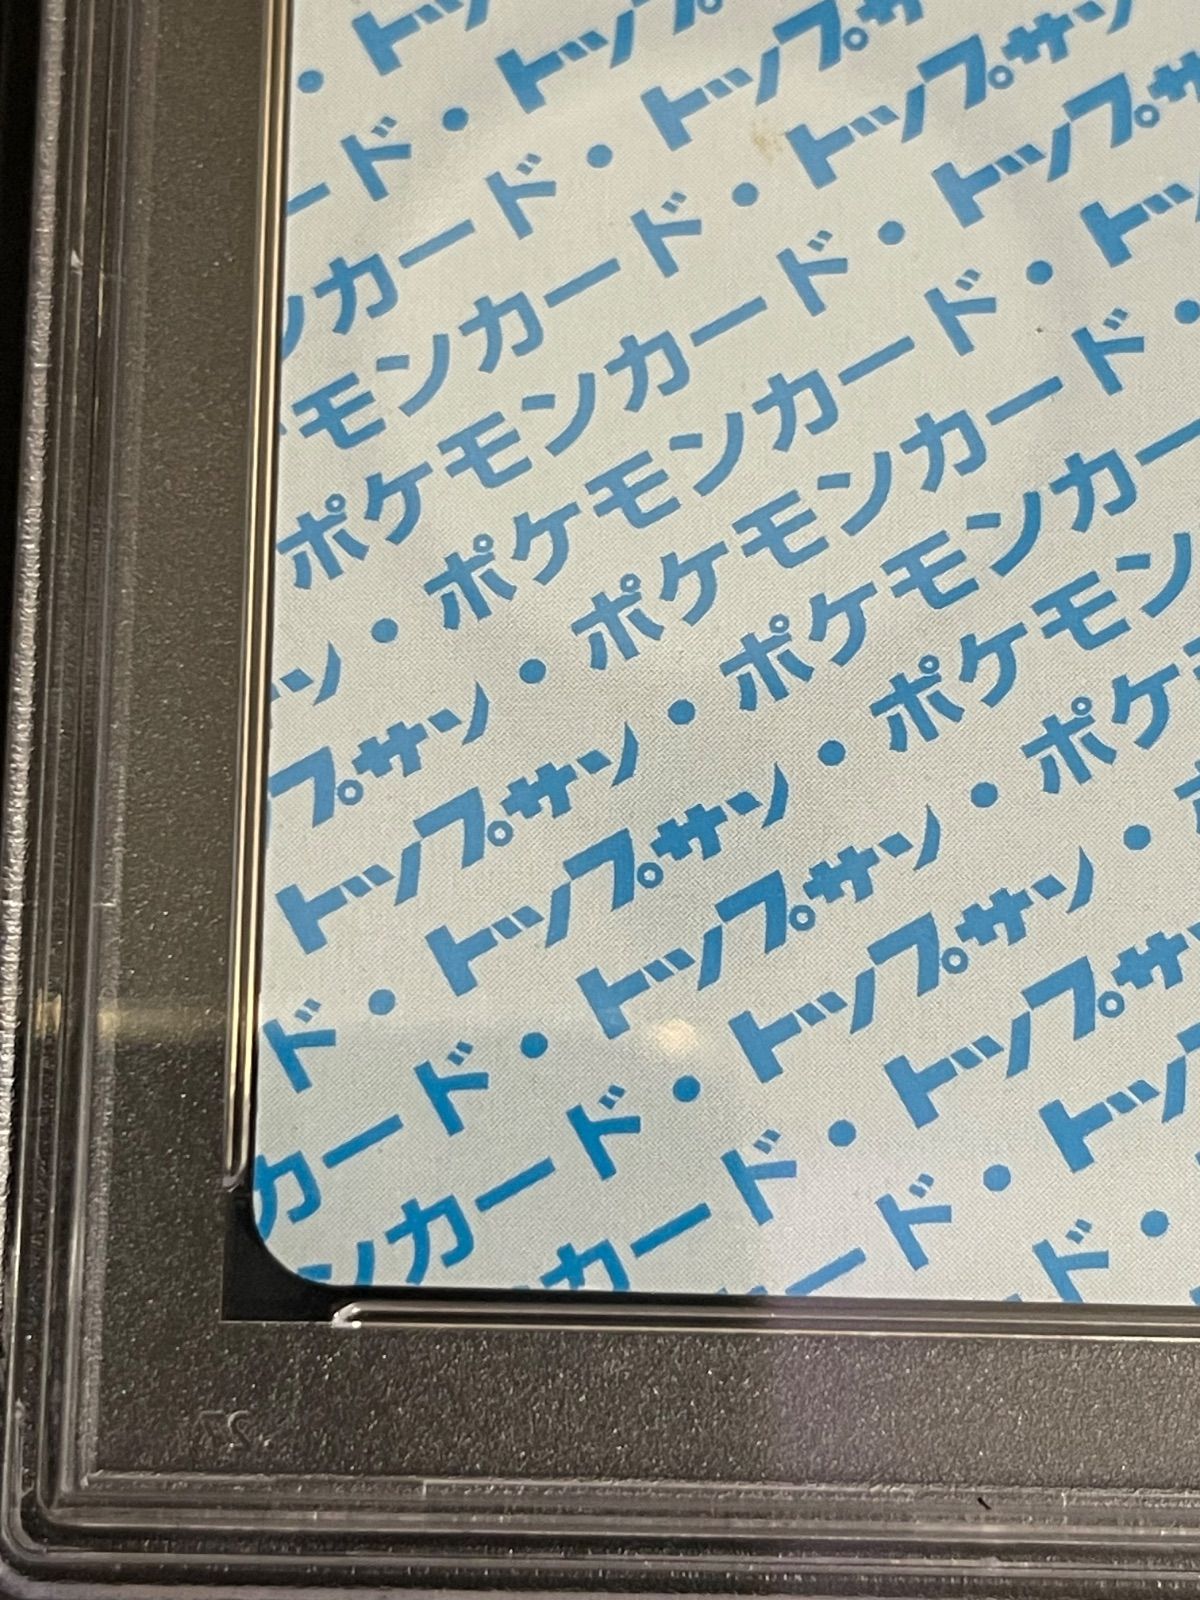 ・トッ
ード・トップ
ンカード・トップサ
モンカード・トップサン
ポケモンカード・トップサ
ン・ポケモンカード・トッ
プサン・ポケモンカード・
トップサン・ポケモンカー
ド・トップサン・ポケモン
カード・トップサン・ポケ
ンカード・トップサン・
カード・トップサ
ード・トップ
ド・
27